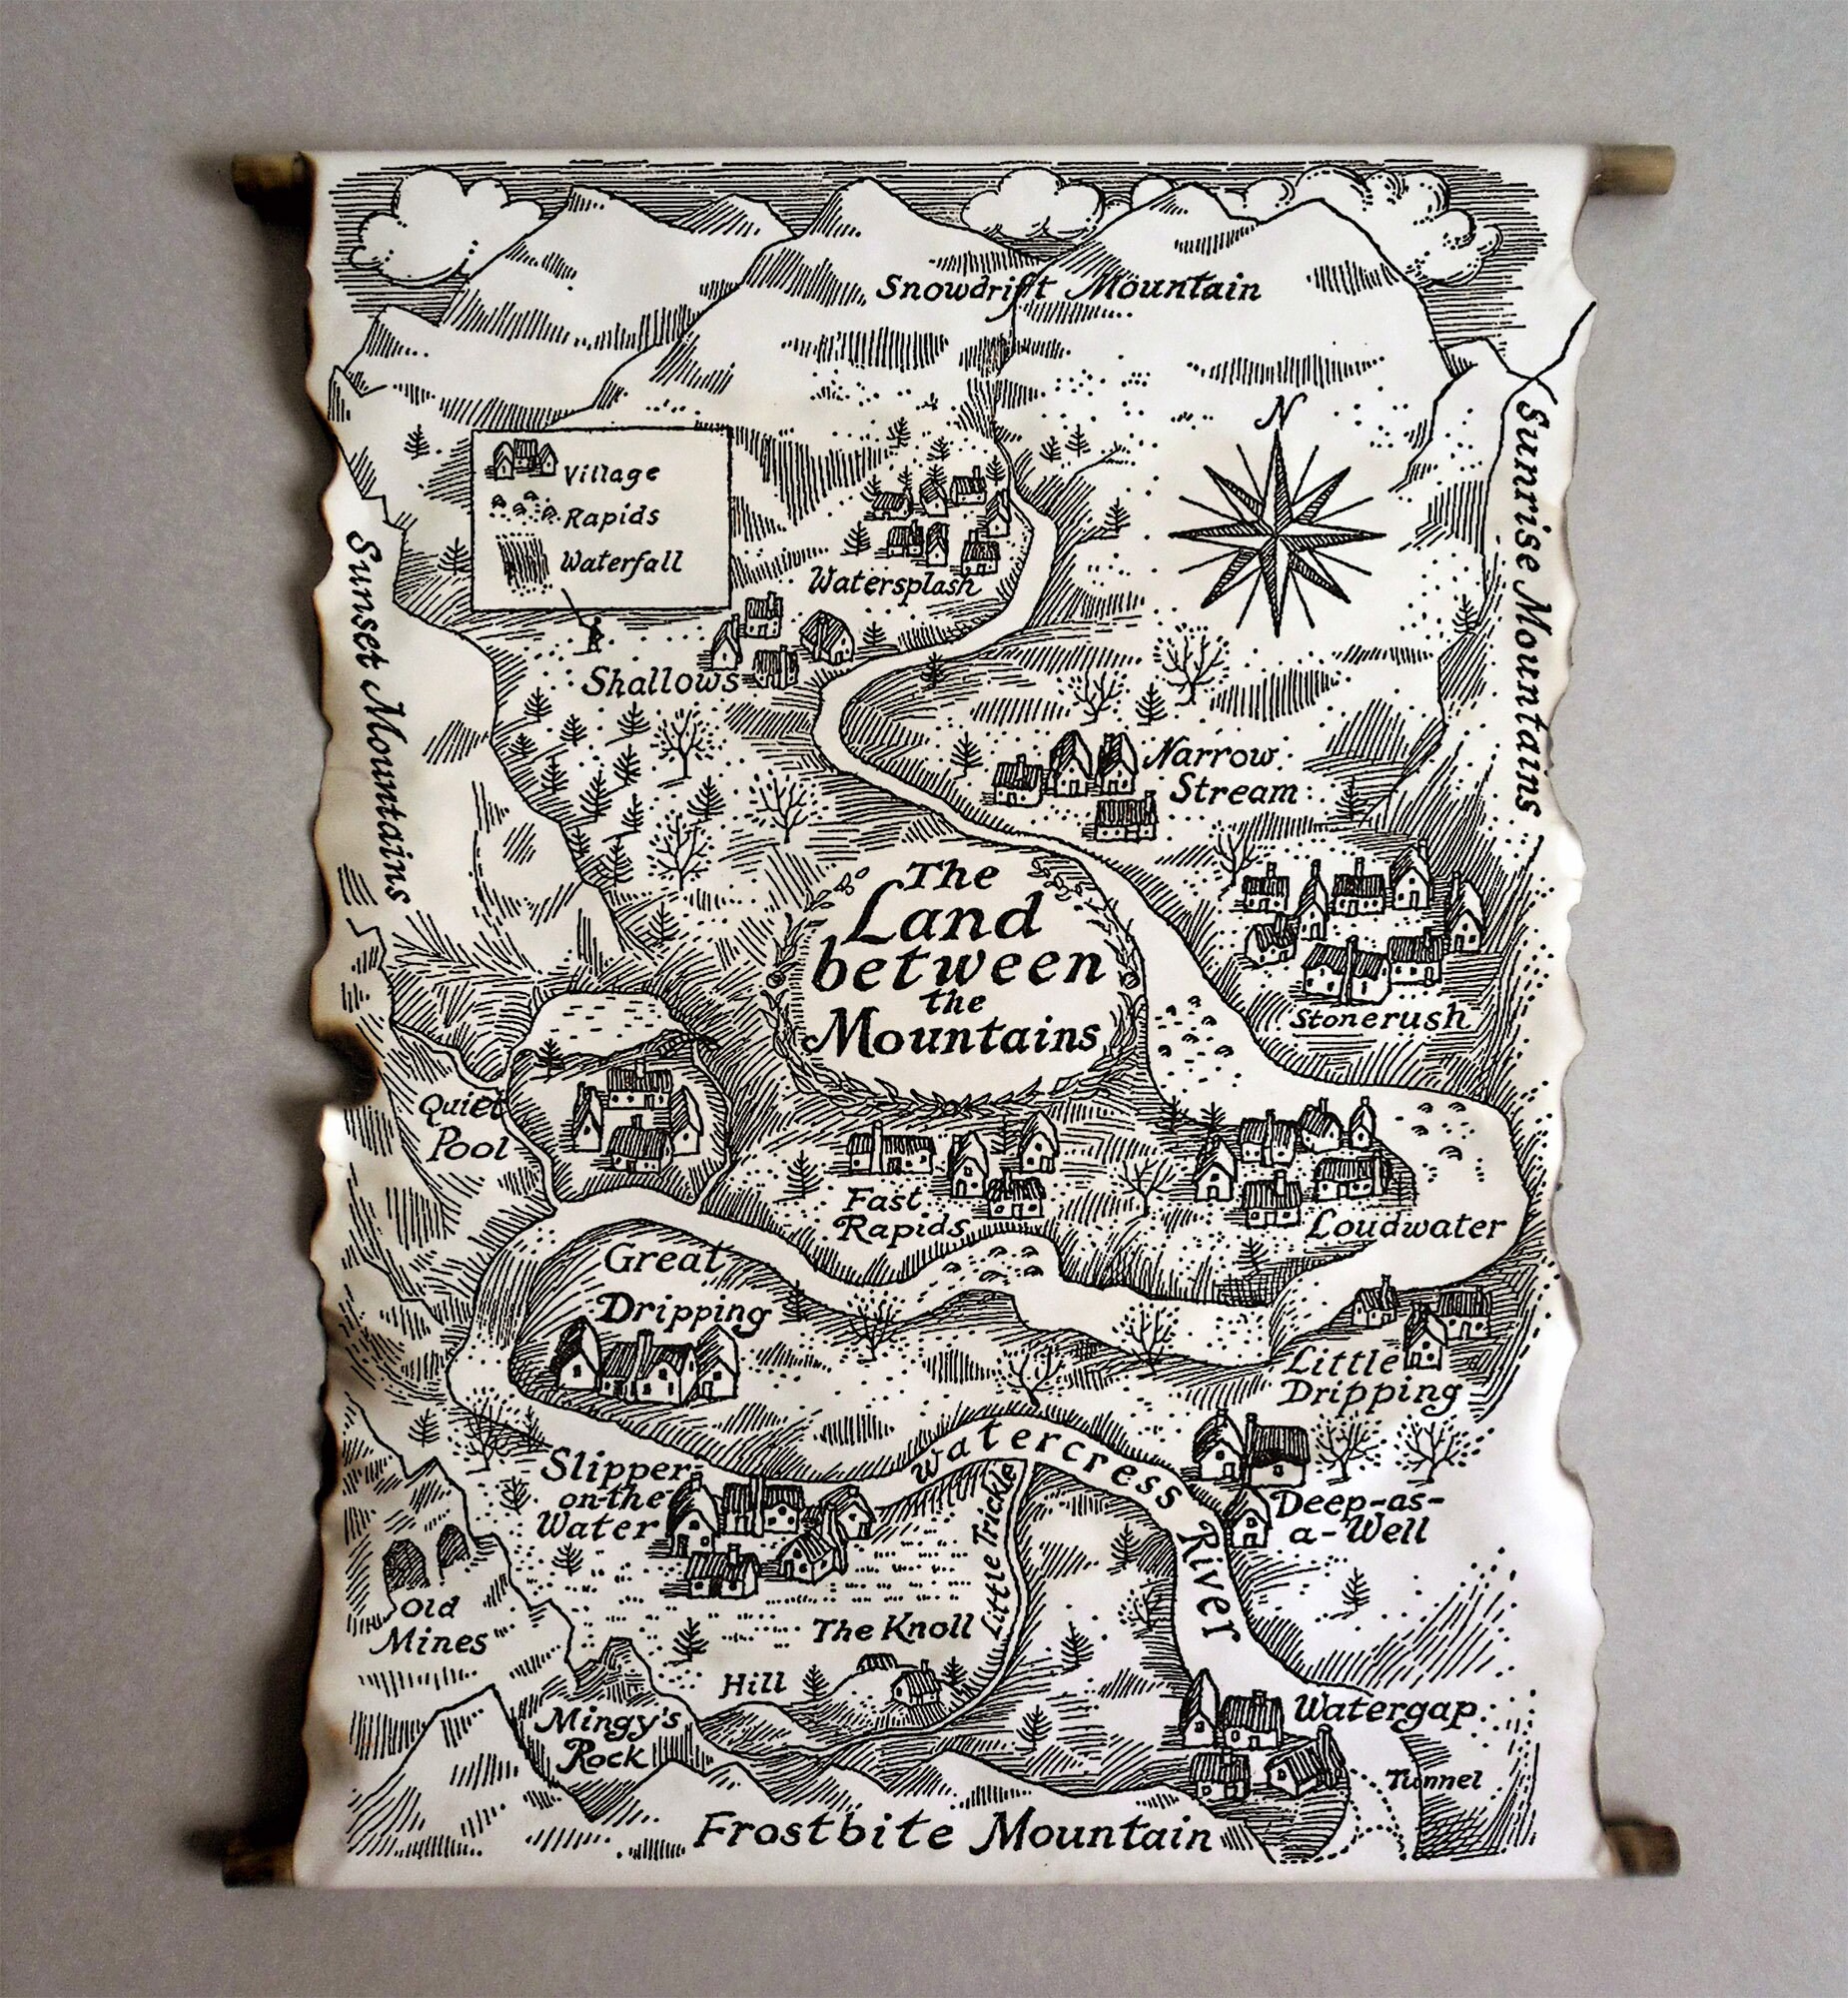 Snowdrift Mountain
N
Village
Rapids
Waterfall
Sunset Mountains
Sunrise Mountains
Watersplash
Shallows
Narrow
Stream
The
Land
between
the
Mountains
Stonerush
Quiet
Pool
Fast
Rapids
Loudwater
Great
Dripping
Little
Dripping
Watercress River
Slipper-
on-the-
Water
Little Trickle
Deep-as-
a-Well
Old
Mines
The Knoll
Hill
Mingy's
Rock
Watergap
Tunnel
Frostbite Mountain